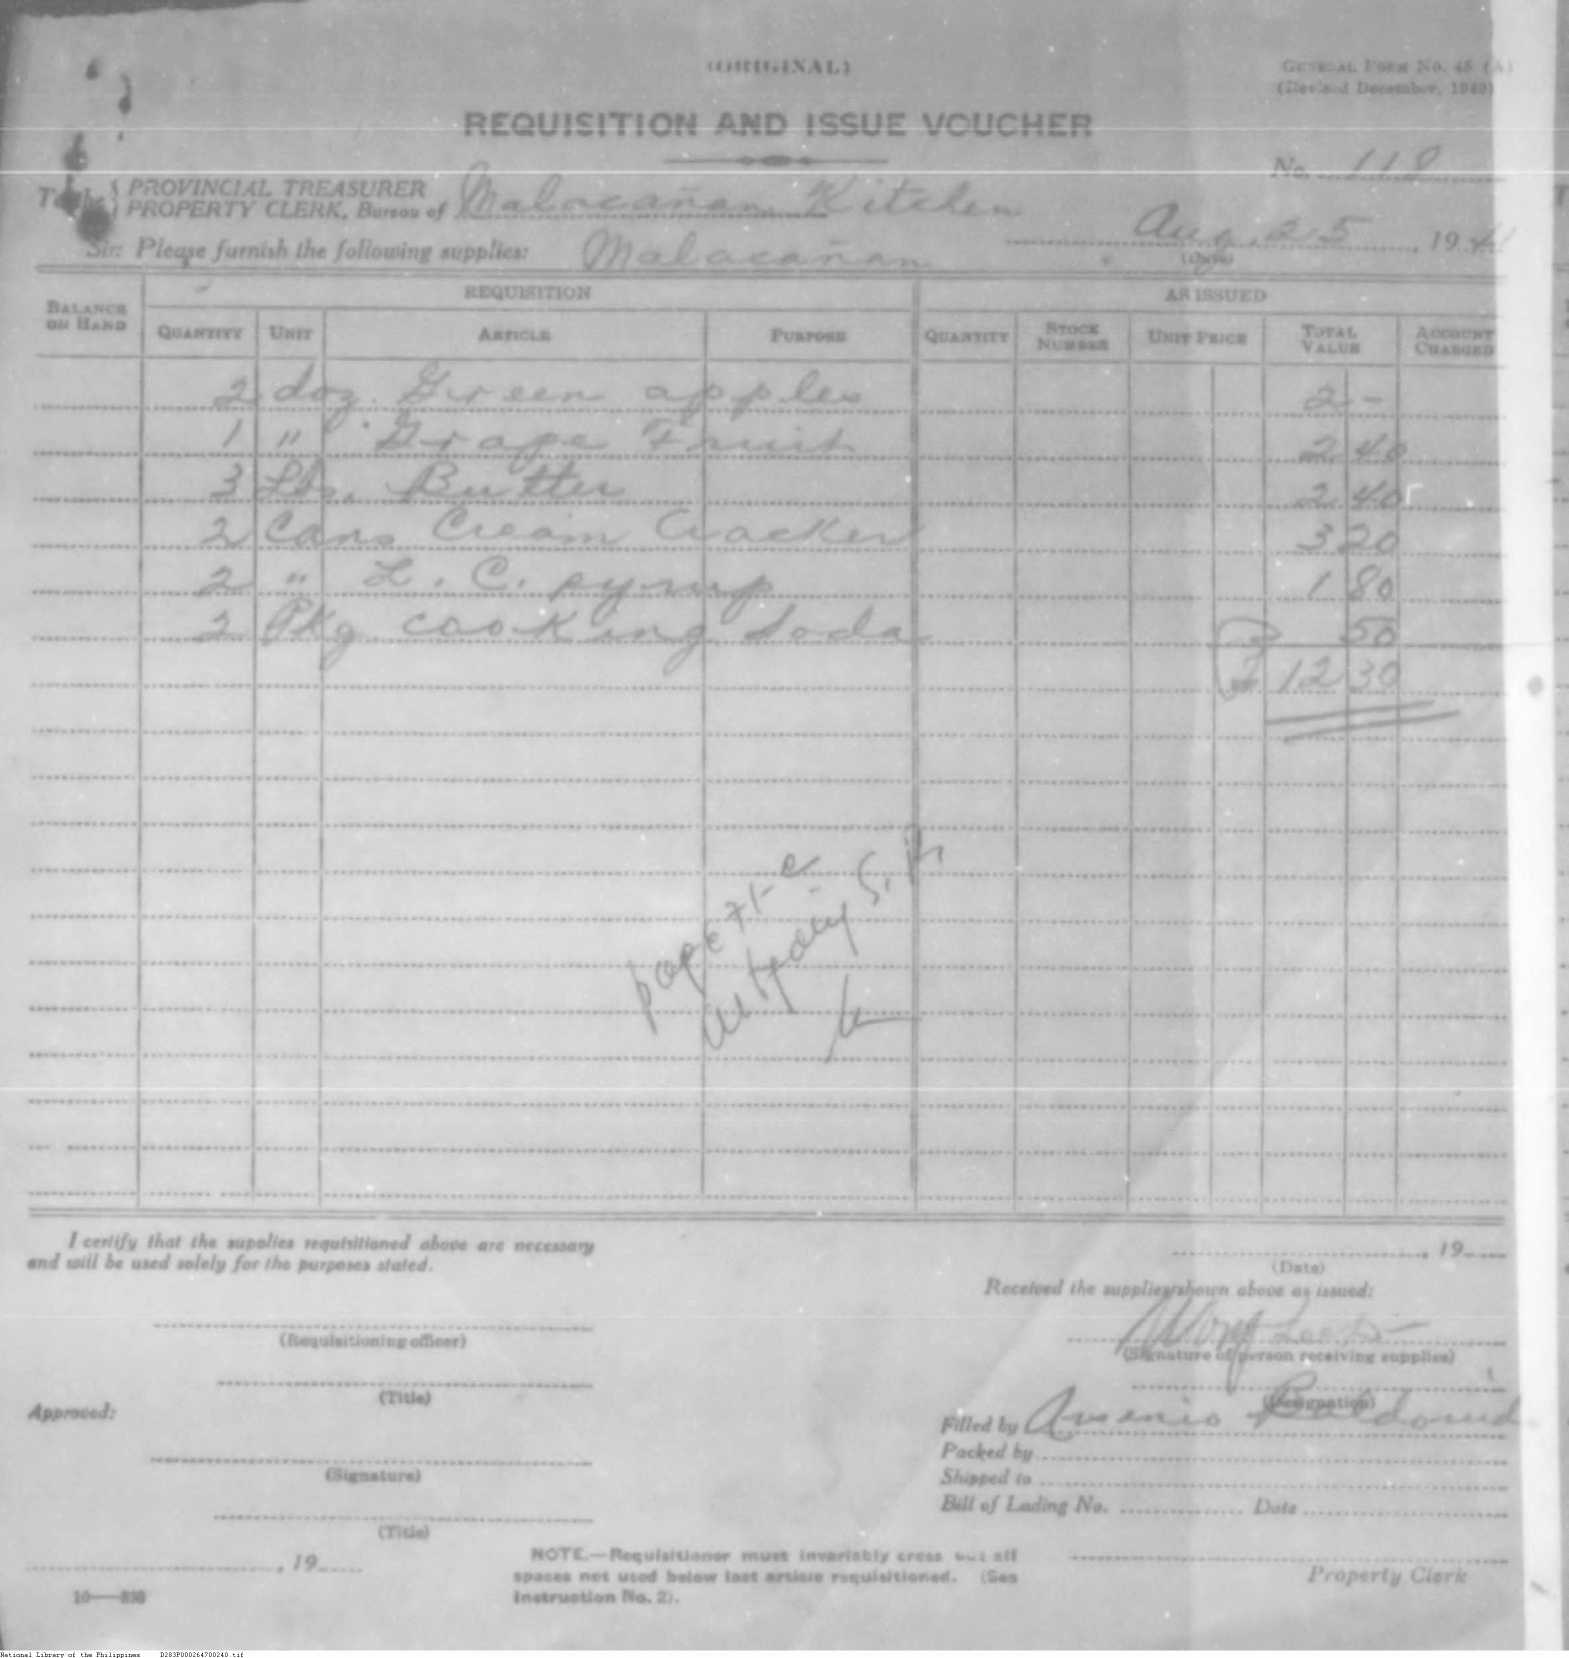 (ORIGINAL)
GENERAL FORM NO. 45 (A)
(Revised December, 1940)
REQUISITION AND ISSUE VOUCHER
No. 118
To the PROVINCIAL TREASURER
PROPERTY CLERK, Bureau of Malacañan Kitchen
Aug. 25, 1941
(Date)
Sir: Please furnish the following supplies: Malacañan
BALANCE ON HAND REQUISITION AS ISSUED
QUANTITY UNIT ARTICLE PURPOSE QUANTITY STOCK NUMBER UNIT PRICE TOTAL VALUE ACCOUNT CHARGED
2 doz. Green apples 2 -
1 " Grape Fruit 2 40
3 Lbs. Butter 2 40
2 Cans Cream Cracker 3 20
2 " L. C. syrup 1 80
2 Pkg cooking Soda 50
12 30
I certify that the supplies requisitioned above are necessary
and will be used solely for the purposes stated.
(Requisitioning officer)
(Title)
Approved:
(Signature)
(Title)
, 19
10—838
, 19
(Date)
Received the supplies shown above as issued:
(Signature of person receiving supplies)
(Designation)
Filled by Arsenio
Packed by
Shipped to
Bill of Lading No. Date
Property Clerk
NOTE.—Requisitioner must invariably cross out all
spaces not used below last article requisitioned. (See
Instruction No. 2).
National Library of the Philippines D283P000264700240.tif